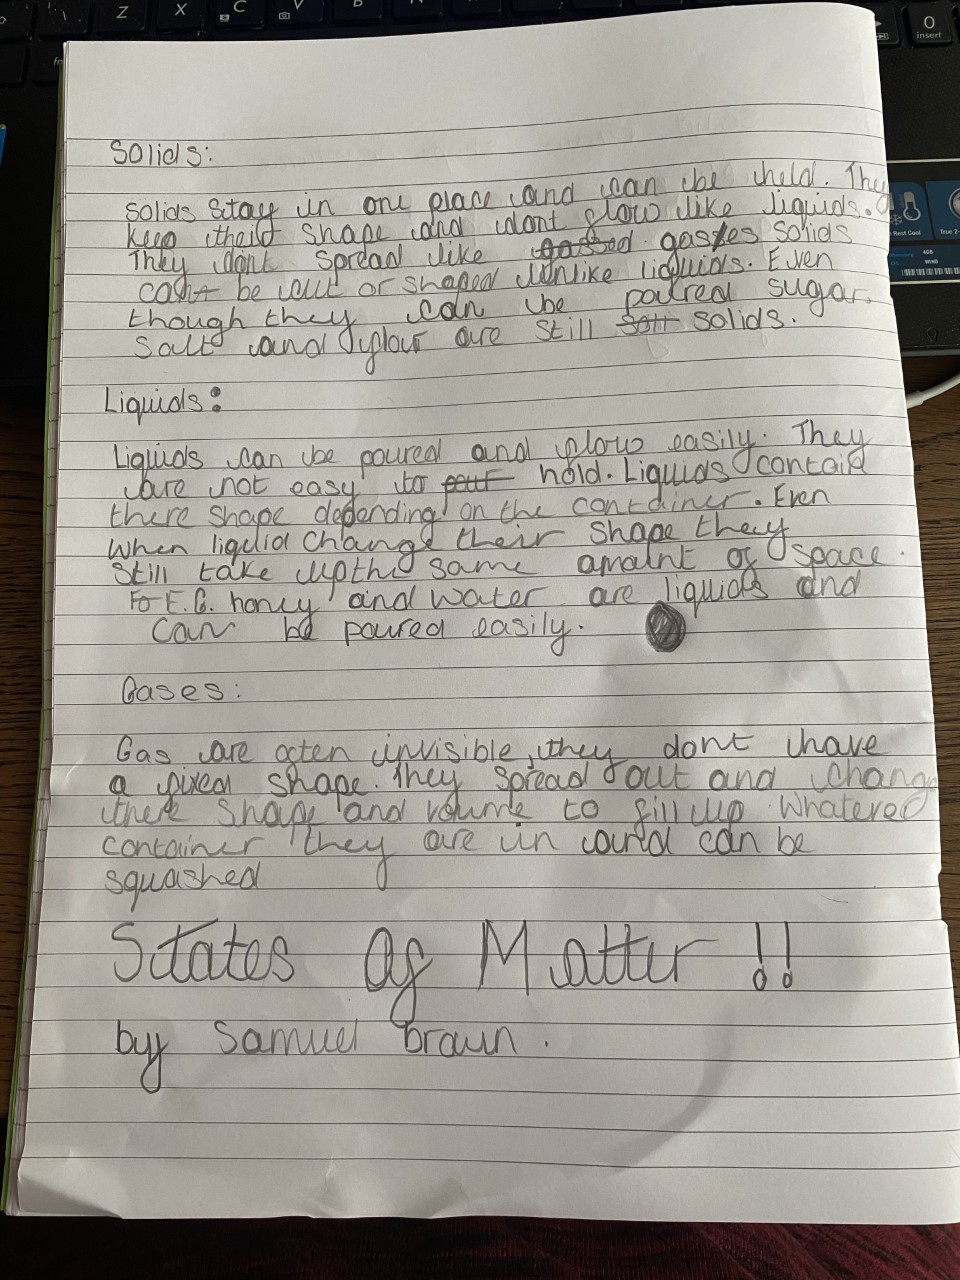 Z X C V B
0
insert
Solids:
solids stay in one place and can be held. They
keep their shape and dont flow like liquids.
They dont spread like gases solids
can be cut or shaped unlike liquids. Even
though they can be poured sugar.
Salt and flour are still solids.
Liquids:
Liquids can be poured and flow easily. They
are not easy to hold. Liquids contain
there shape depending on the container. Even
when liquid change their shape they
still take up the same amount of space.
Fo E.G. honey and water are liquids and
can be poured easily.
Gases:
Gas are often invisible, they dont have
a fixed shape. They spread out and chang
there shape and volume to fill up whatever
container they are in and can be
squashed
States of Matter !!
by Samuel braun.